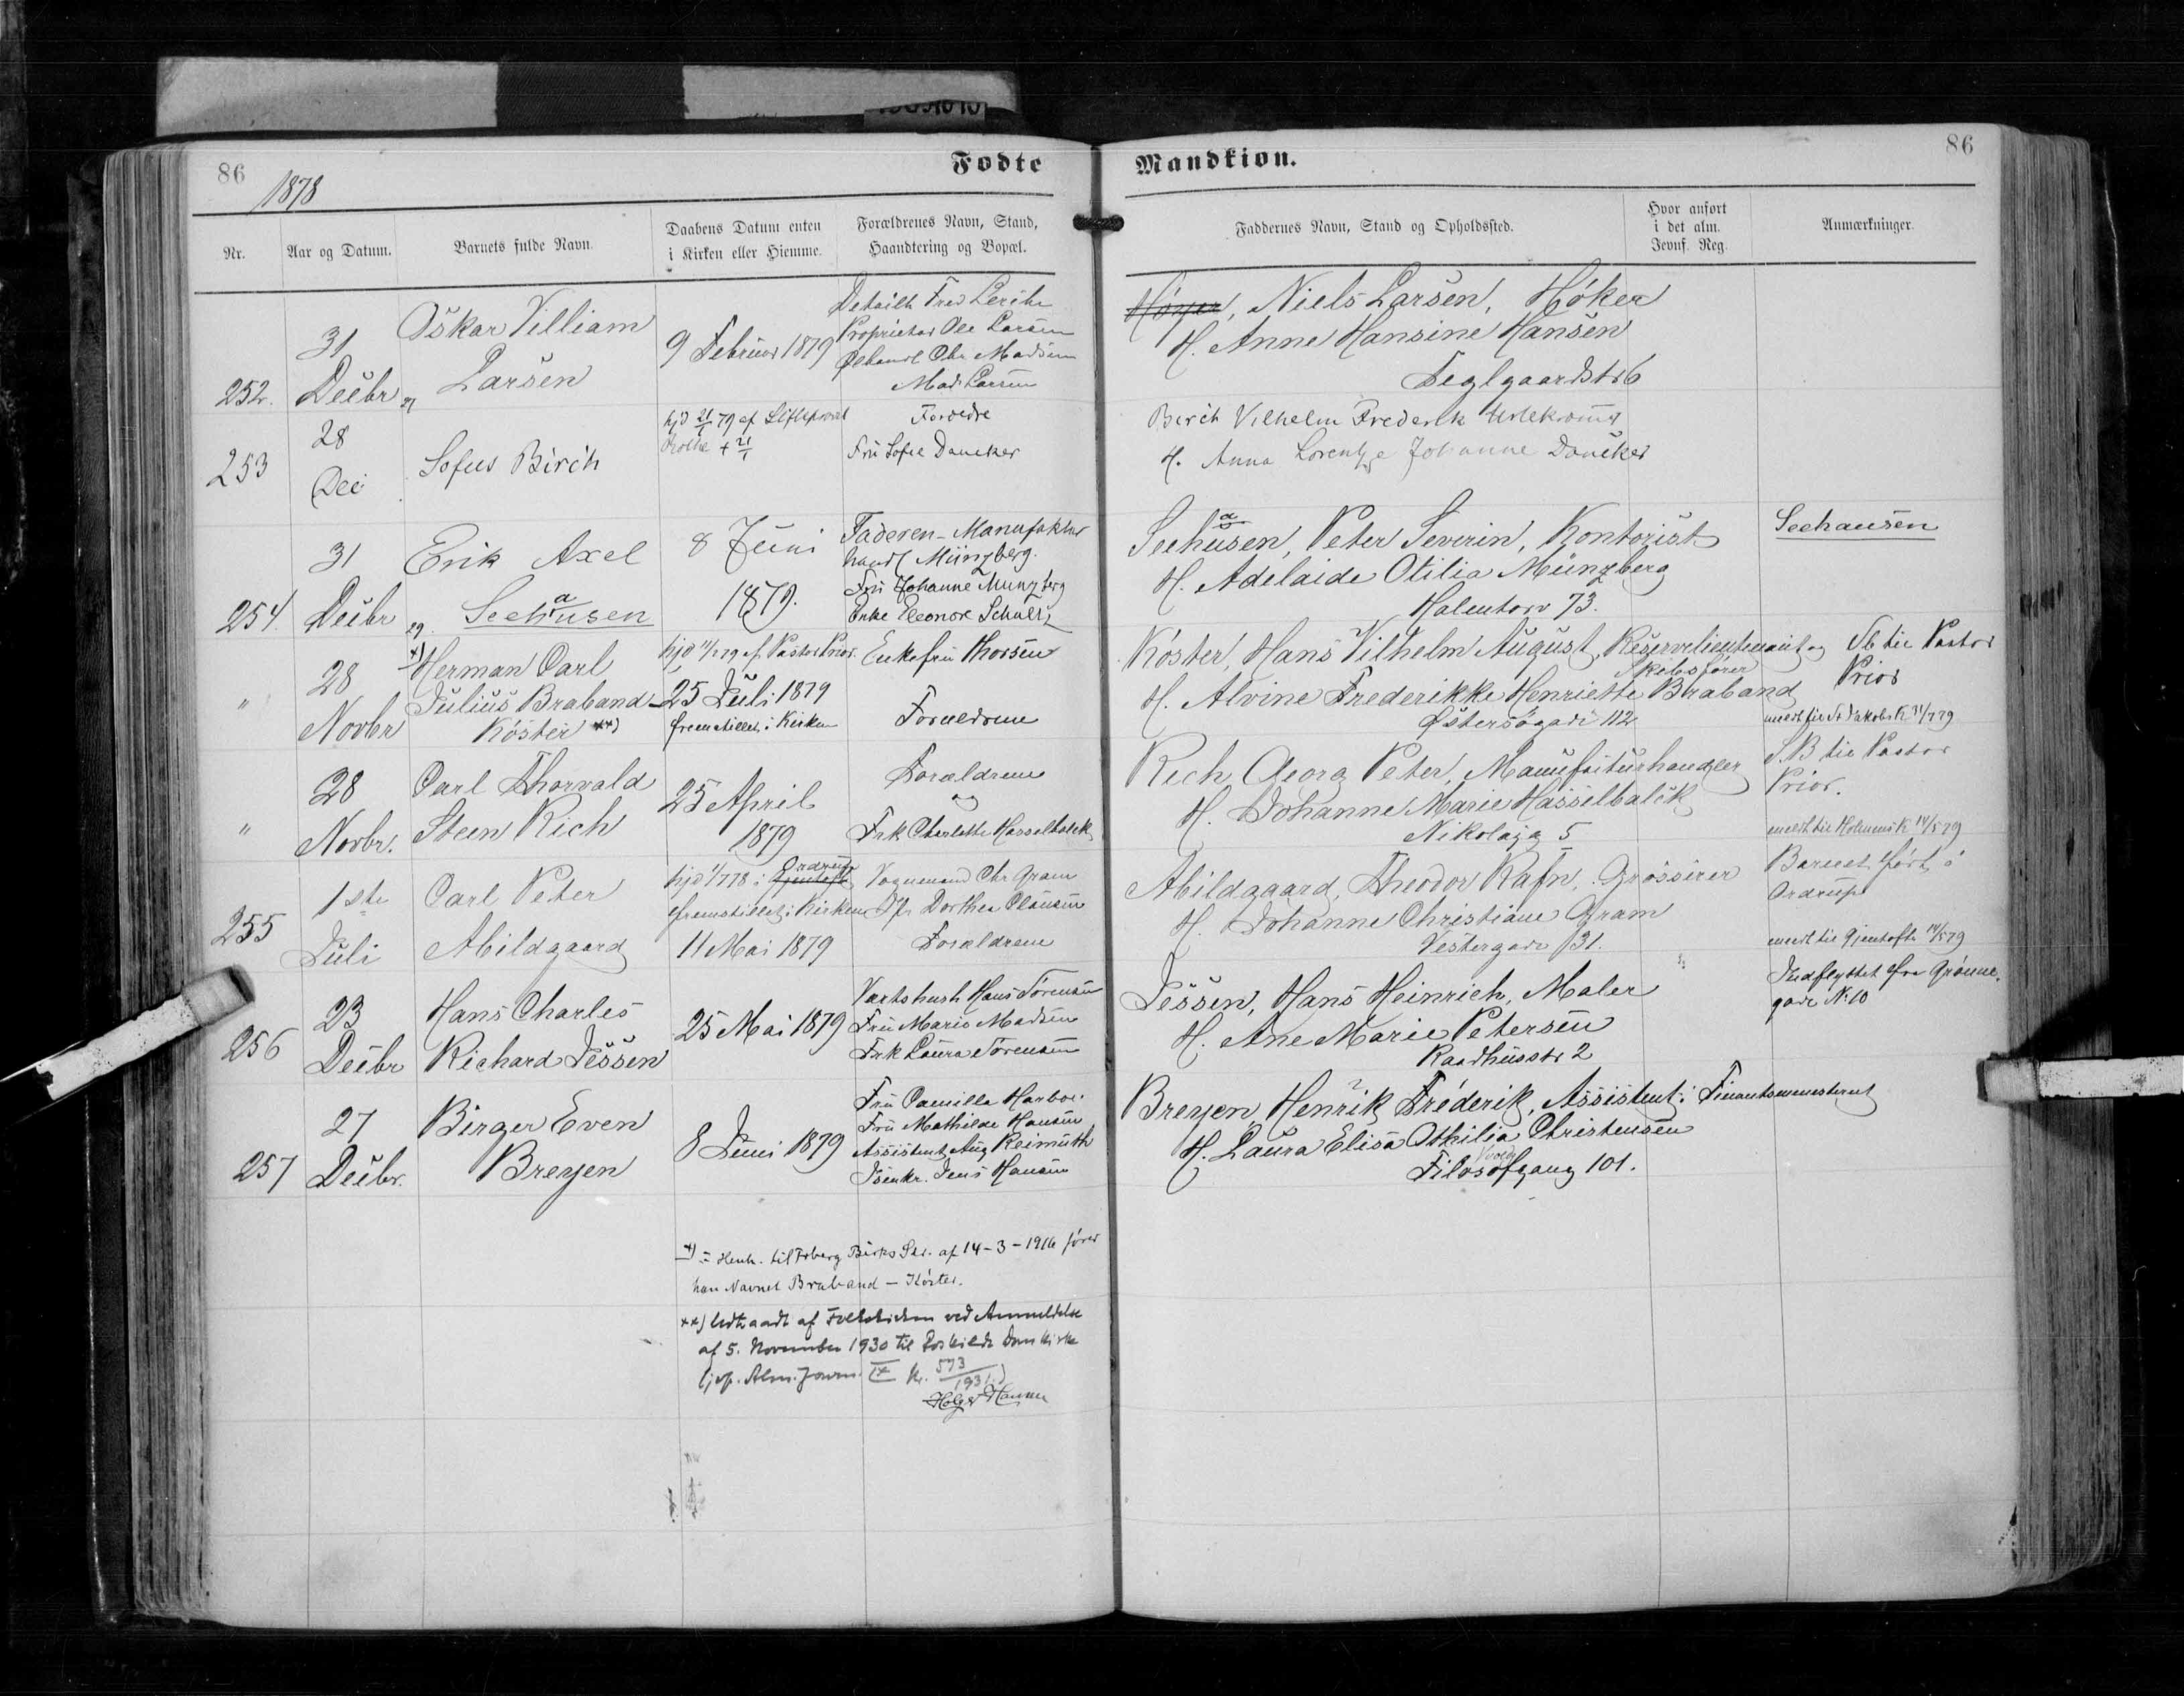 86
1878
Fodte
Nr.
Aar og Datum.
Barnets fulde Navn.
Daabens Datum enten
i Kirken eller Hiemme.
Forældrenes Navn, Stand,
Haandtering og Bopæl.
252.
31
Decbr
Oskar Villiam
Larsen
9 Februar 1879
Proprietær Ole Larsen
Chr Madsen
Mad. Larsen
253
28
Dec
Sofus Birch
hjd 21/1 79 af Stiftsprovst
Rothe + 21/1
Forældre
Fru Sofie Dancker
254.
31
Decbr
Erik Axel
Seehausen
8 Juni
1879.
Faderen - Manufaktur
handl Münzberg.
Fru Johanne Munzberg
Enke Eleonore Schultz
"
28
Novbr
*) Herman Carl
Julius Braband
Köster **)
af Pastor Prior.
25 Juli 1879
fremstillet i Kirken
Enkefru Thorsen
Forældrene
"
28
Novbr.
Carl Thorvald
Steen Rich
25 April
1879
Forældrene
og
Frk Charlotte Hasselbalck
255
1ste
Juli
Carl Peter
Abildgaard
hjd 1/7 78 i Gjentofte Ordrup
fremstillet i Kirken
11 Mai 1879
Vognmand Chr Gram
Dorthea Clausen
Forældrene
256
23
Decbr
Hans Charles
Richard Jessen
25 Mai 1879
Værtshush Hans Sörensen
Fru Marie Madsen
Frk Laura Sörensen
257
27
Decbr.
Birger Even
Breyen
8 Juni 1879
Fru Camilla Harboe.
Fru Mathilde Hansen
Assistent Aug Reimuth
Isenkr. Jens Hansen
*) = Henh. til Frberg Birks Skr. af 14-3-1916 fører
han Navnet Braband - Köster.
**) Udtraadt af Folkekirken ved Anmeldelse
af 5. November 1930 til Roskilde Domkirke
(jvf. Alm. Journ. IX Nr. 573/1931)
Holger Hansen
Mandkiøn.
86
Faddernes Navn, Stand og Opholdssted.
Hvor anført
i det alm.
Jevnf. Reg.
Anmærkninger.
Høyer, Niels Larsen, Høker
H. Anne Hansine Hansen
Teglgaardstr 6
Birch Vilhelm Frederik Urtekræmmer
H. Anna Lorentze Johanne Dancker
Seehausen, Peter Severin, Kontorist
H. Adelaide Otilia Münzberg
Halmtorv 73.
Seehausen
Köster, Hans Vilhelm August, Reservelieutenant og
Skibsfører
H. Alvine Frederikke Henriette Braband
Østersøgade 112
Sb til Pastor
Prior
meldt til St Jakobs K 31/7 79
Rich, Georg Peter, Manufakturhandler
H. Johanne Marie Hasselbalck
Nikolajg 5
S.B til Pastor
Prior.
meldt til Holmens K 14/5 79
Abildgaard, Theodor Rafn, Grosserer
H. Johanne Christiane Gram
Vestergade 31.
Barnet født i
Ordrup
meldt til Gjentofte 14/5 79
Jessen, Hans Heinrich, Maler
H. Ane Marie Petersen
Raadhusstr 2
Indflyttet fra Grønne-
gade N: 10
Breyen, Henrik Frederik, Assistent i Finantsministeriet
H. Laura Elisa Othilia Christensen
Filosofgang 101.